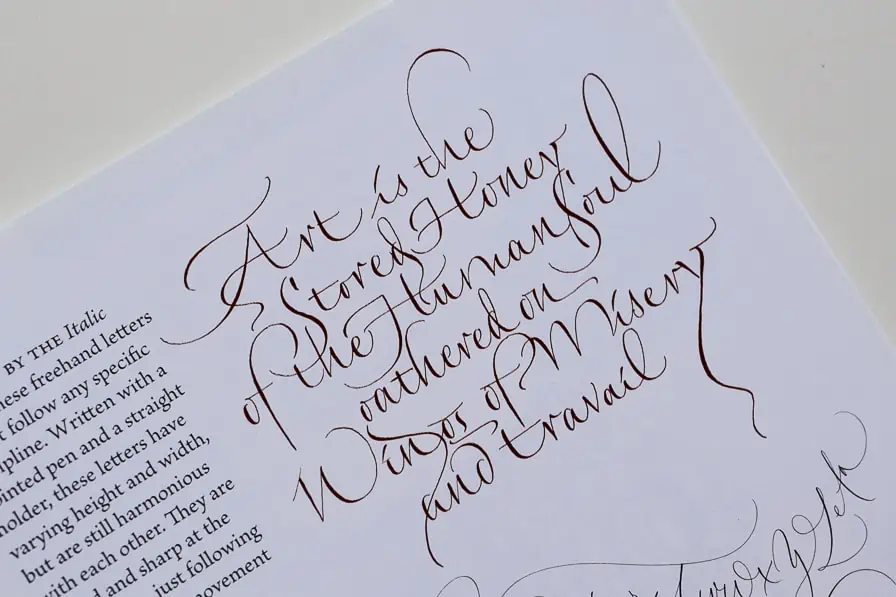 Art is the
Stored Honey
of the Human Soul
gathered on
Wings of Misery
and travail
BY THE Italic
these freehand letters
t follow any specific
ipline. Written with a
ointed pen and a straight
holder, these letters have
varying height and width,
but are still harmonious
with each other. They are
d and sharp at the
just following
ovement